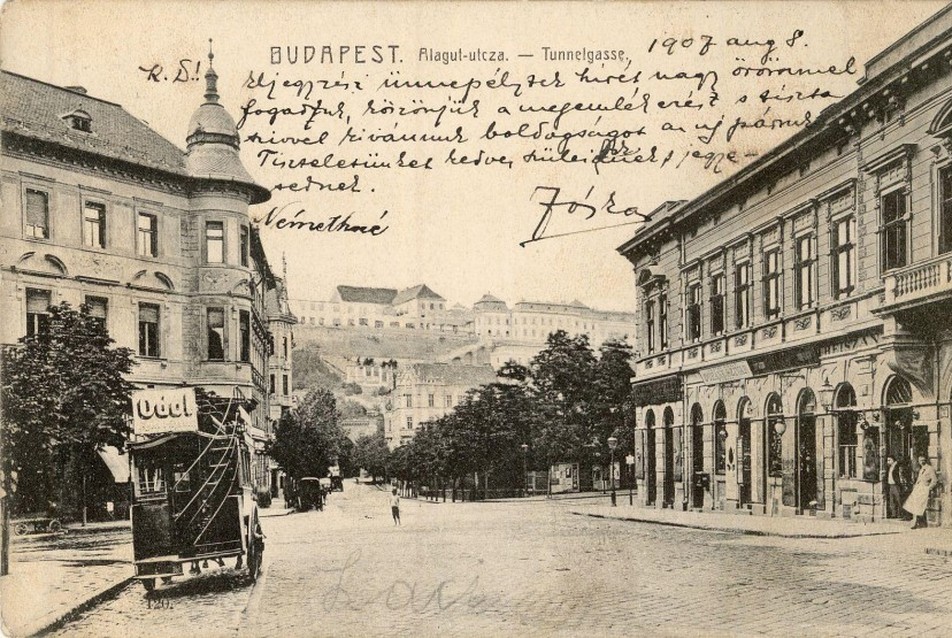 BUDAPEST. Alagut-utcza. — Tunnelgasse.
1907 aug 8.
K. D.!
Eljegyzési ünnepélytek hirét nagy örömmel
fogadtuk, köszönjük a megemlékezést s tiszta
szivvel kivánunk boldogságot az uj párnak
Tiszteletünket kedves szüleidnek s jegye-
sednek.
Némethné
Jóska
Odol
120.